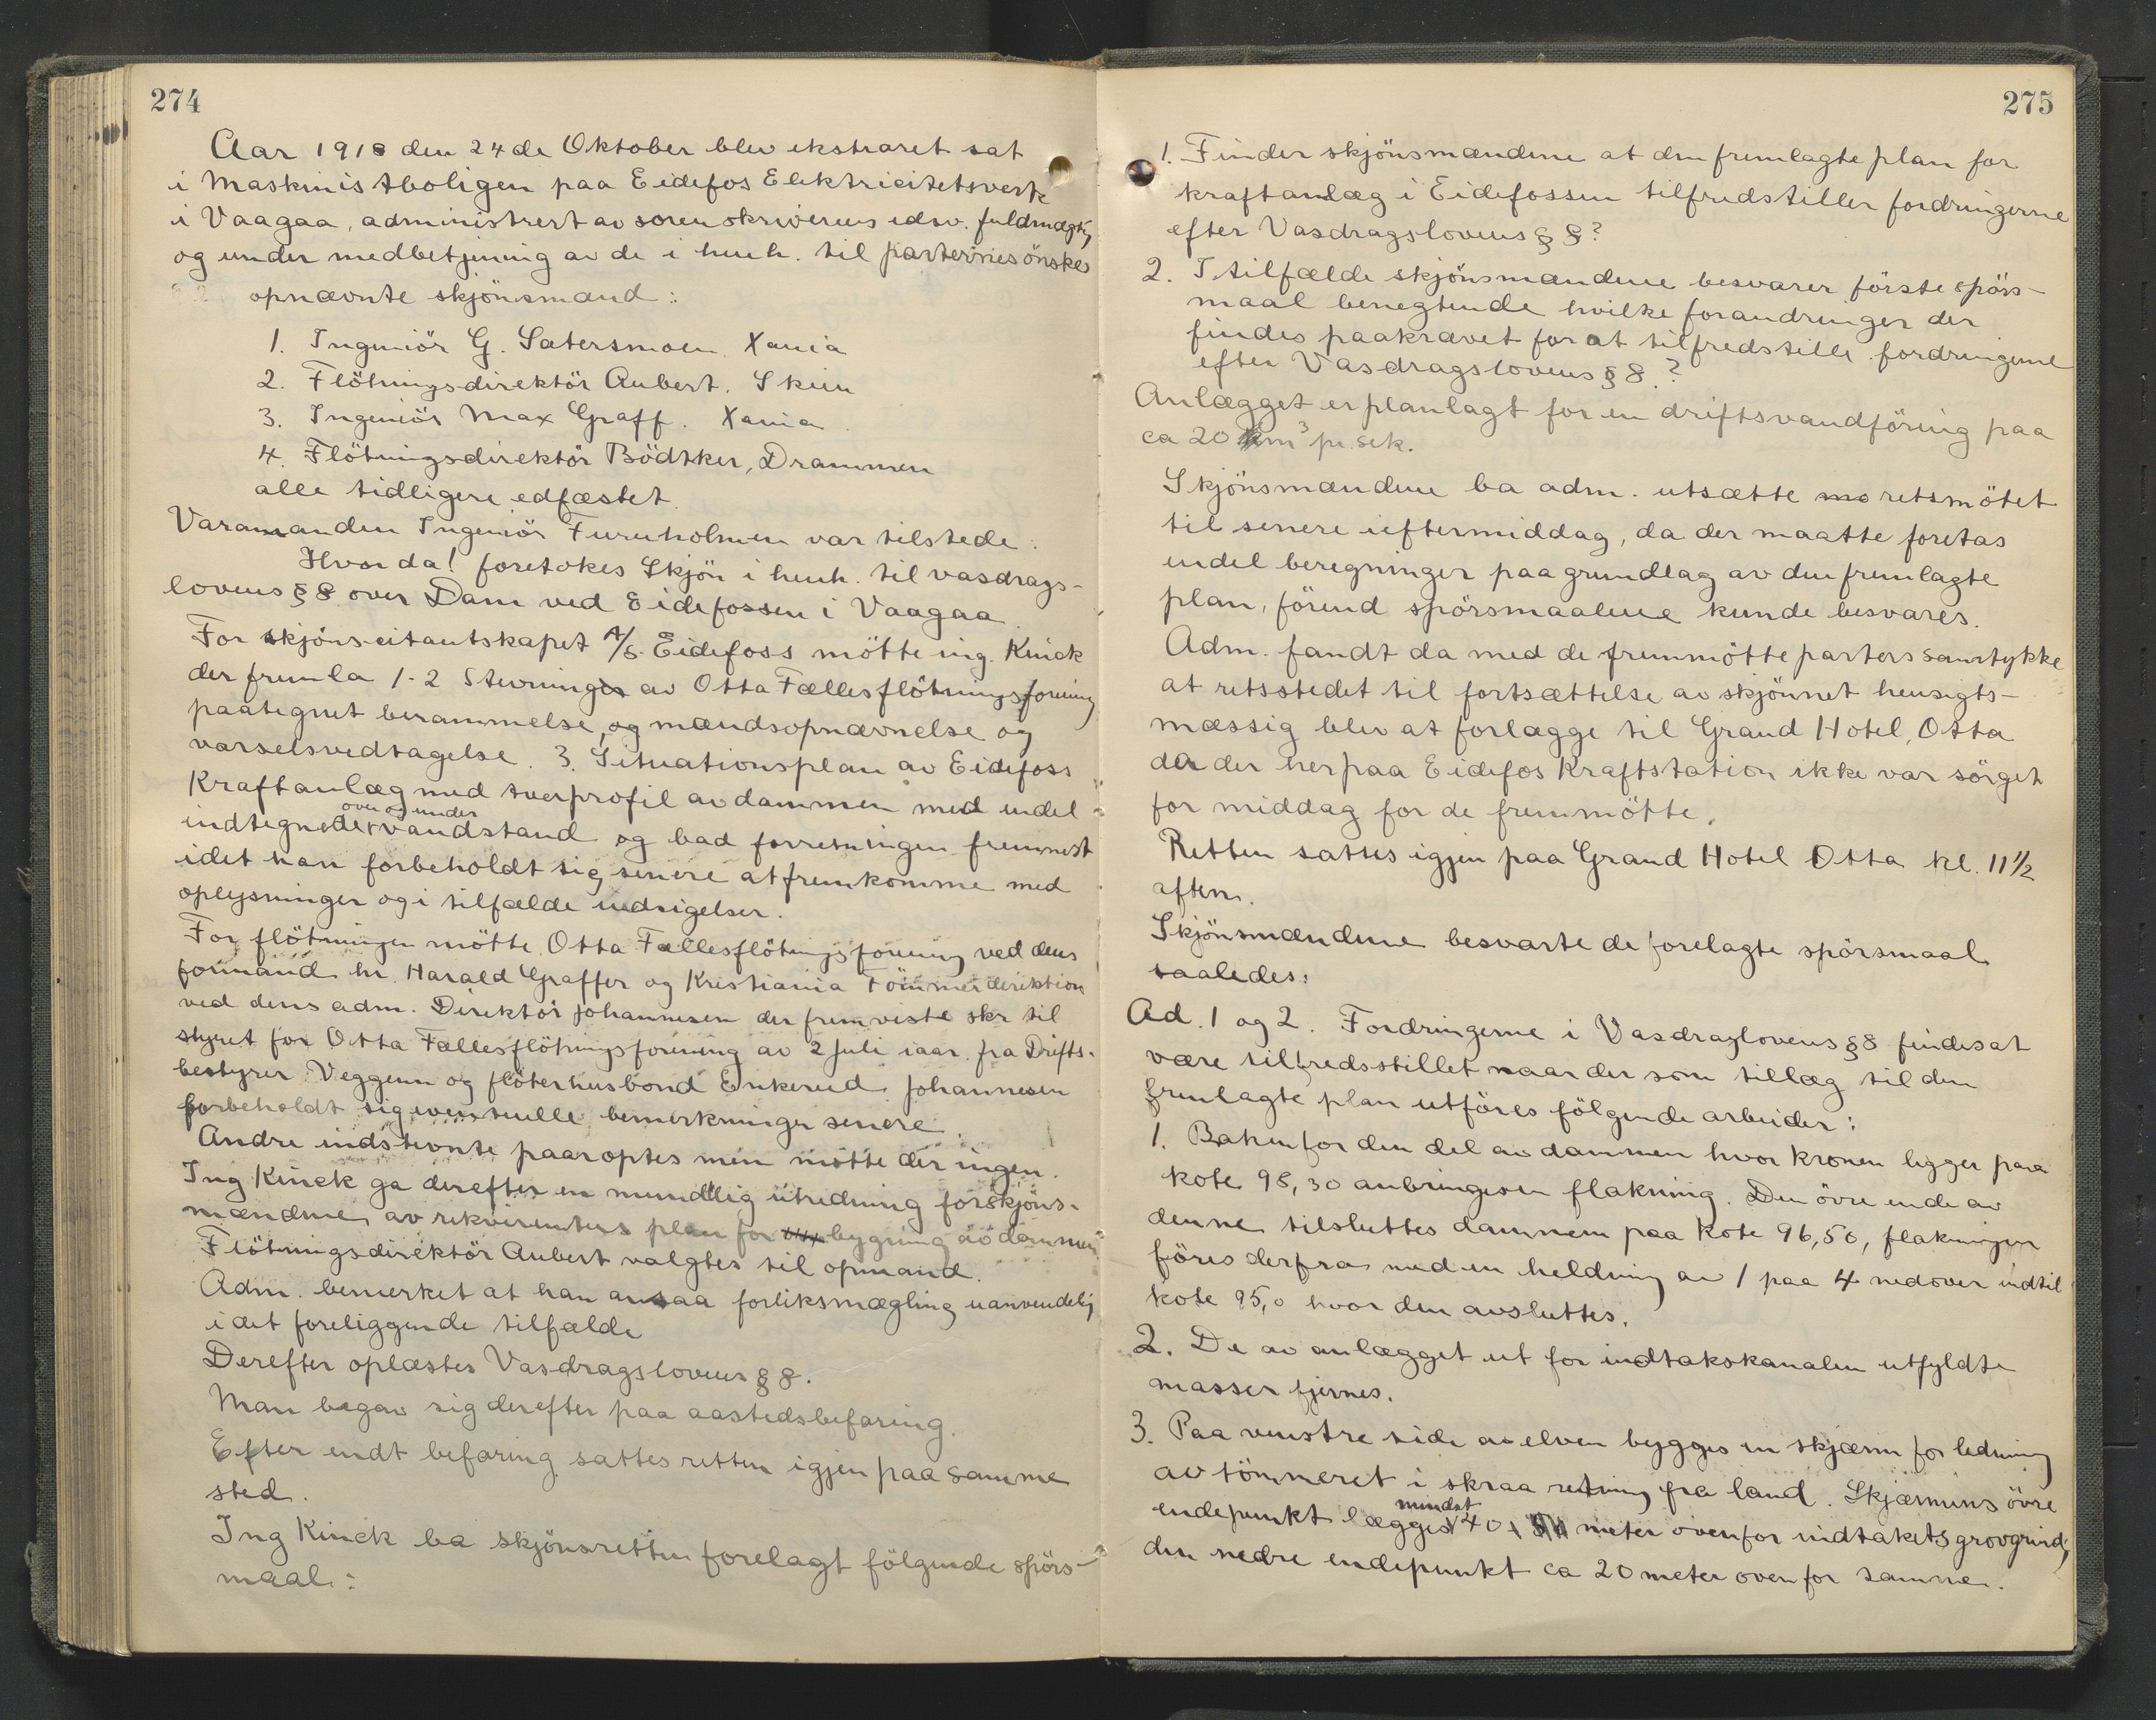 274
Aar 1918 den 24de Oktober blev ekstraret sat
i Maskinistboligen paa Eidefos Elektricitetsverk
i Vaagaa, administrert av sorenskriverens edsv. fuldmægtig
og under medbetjening av de i henh. til parternes önske
opnævnte skjönsmænd:
1. Ingeniör G. Sætersmoen. Xania
2. Flötningsdirektör Aubert. Skien
3. Ingeniör Max Graff. Xania.
4. Flötningsdirektör Bödtker, Drammen
alle tidligere edfæstet.
Varamanden Ingeniör Furuholmen var tilstede.
Hvorda! foretokes Skjön i henh. til vasdrags-
lovens § 8 over Dam ved Eidefossen i Vaagaa.
For skjönscitantskapet A/S. Eidefoss mötte ing. Kinck
der fremla 1-2 Stevninger av Otta Fællesflötningsforening
paategnet berammelse, og mændsopnævnelse og
varselsvedtagelse. 3. Situationsplan av Eidefoss
Kraftanlæg med tverprofil av dammen med endel
over og under
indtegnede vandstand og bad forretningen fremmet
idet han forbeholdt sig senere at fremkomme med
oplysninger og i tilfælde indsigelser.
For flötningen mötte Otta Fællesflötningsforening ved dens
formand hr. Harald Graffer og Kristiania Tömmerdirektion
ved dens adm. Direktör Johannesen der fremviste skr til
styret for Otta Fællesflötningsforening av 2 Juli iaar fra Drifts-
bestyrer Veggenn og flöterhusbond Enkerud. Johannesen
forbeholdt sig eventuelle bemerkninger senere.
Andre indstevnte paaroptes men mötte der ingen.
Ing Kinck ga derefter en mundtlig utredning for skjöns-
mændene av rekvirentens plan for bygning av dammen
Flötningsdirektör Aubert valgtes til opmand.
Adm. bemerket at han ansaa forliksmægling uanvendelig
i det foreliggende tilfælde
Derefter oplæstes Vasdragslovens § 8.
Man begav sig derefter paa aastedsbefaring.
Efter endt befaring sattes retten igjen paa samme
sted.
Ing Kinck ba skjönsretten forelagt fölgende spörs-
maal:
275
1. Finder skjönsmændene at den fremlagte plan for
kraftanlæg i Eidefossen tilfredstiller fordringerne
efter Vasdragslovens § 8?
2. I tilfælde skjönsmændene besvarer förste spörs-
maal benegtende hvilke forandringer der
findes paakrævet for at tilfredstille fordringerne
efter Vasdragslovens § 8.?
Anlægget er planlagt for en driftsvandföring paa
ca 20 m³ pr. sek.
Skjönsmændene ba adm. utsætte retsmötet
til senere ieftermiddag, da der maatte foretas
endel beregninger paa grundlag av den fremlagte
plan, förend spörsmaalene kunde besvares.
Adm. fandt da med de fremmötte parters samtykke
at retsstedet til fortsættelse av skjönnet hensigts-
mæssig blev at forlægge til Grand Hotel, Otta
da der her paa Eidefos Kraftstation ikke var sörget
for middag for de fremmötte.
Retten sattes igjen paa Grand Hotel Otta kl. 11½
aften.
Skjönsmændene besvarte de forelagte spörsmaal
saaledes:
Ad. 1 og 2. Fordringerne i Vasdraglovens § 8 findes at
være tilfredsstillet naar der som tillæg til den
fremlagte plan utföres fölgende arbeider:
1. Bakenfor den del av dammen hvor kronen ligger paa
kote 98,30 anbringes en flakning. Den övre ende av
denne tilsluttes dammem paa Kote 96,50, flakningen
föres derfra med en heldning av 1 paa 4 nedover indtil
kote 95,0 hvor den avsluttes.
2. De av anlægget ut for indtakskanalen utfyldte
masser fjernes.
3. Paa venstre side av elven bygges en skjærm for ledning
av tömmeret i skraa retning fra land. Skjærmens övre
mindst
endepunkt lægges 40 meter ovenfor indtakets grovgrind,
den nedre endepunkt ca 20 meter ovenfor samme.